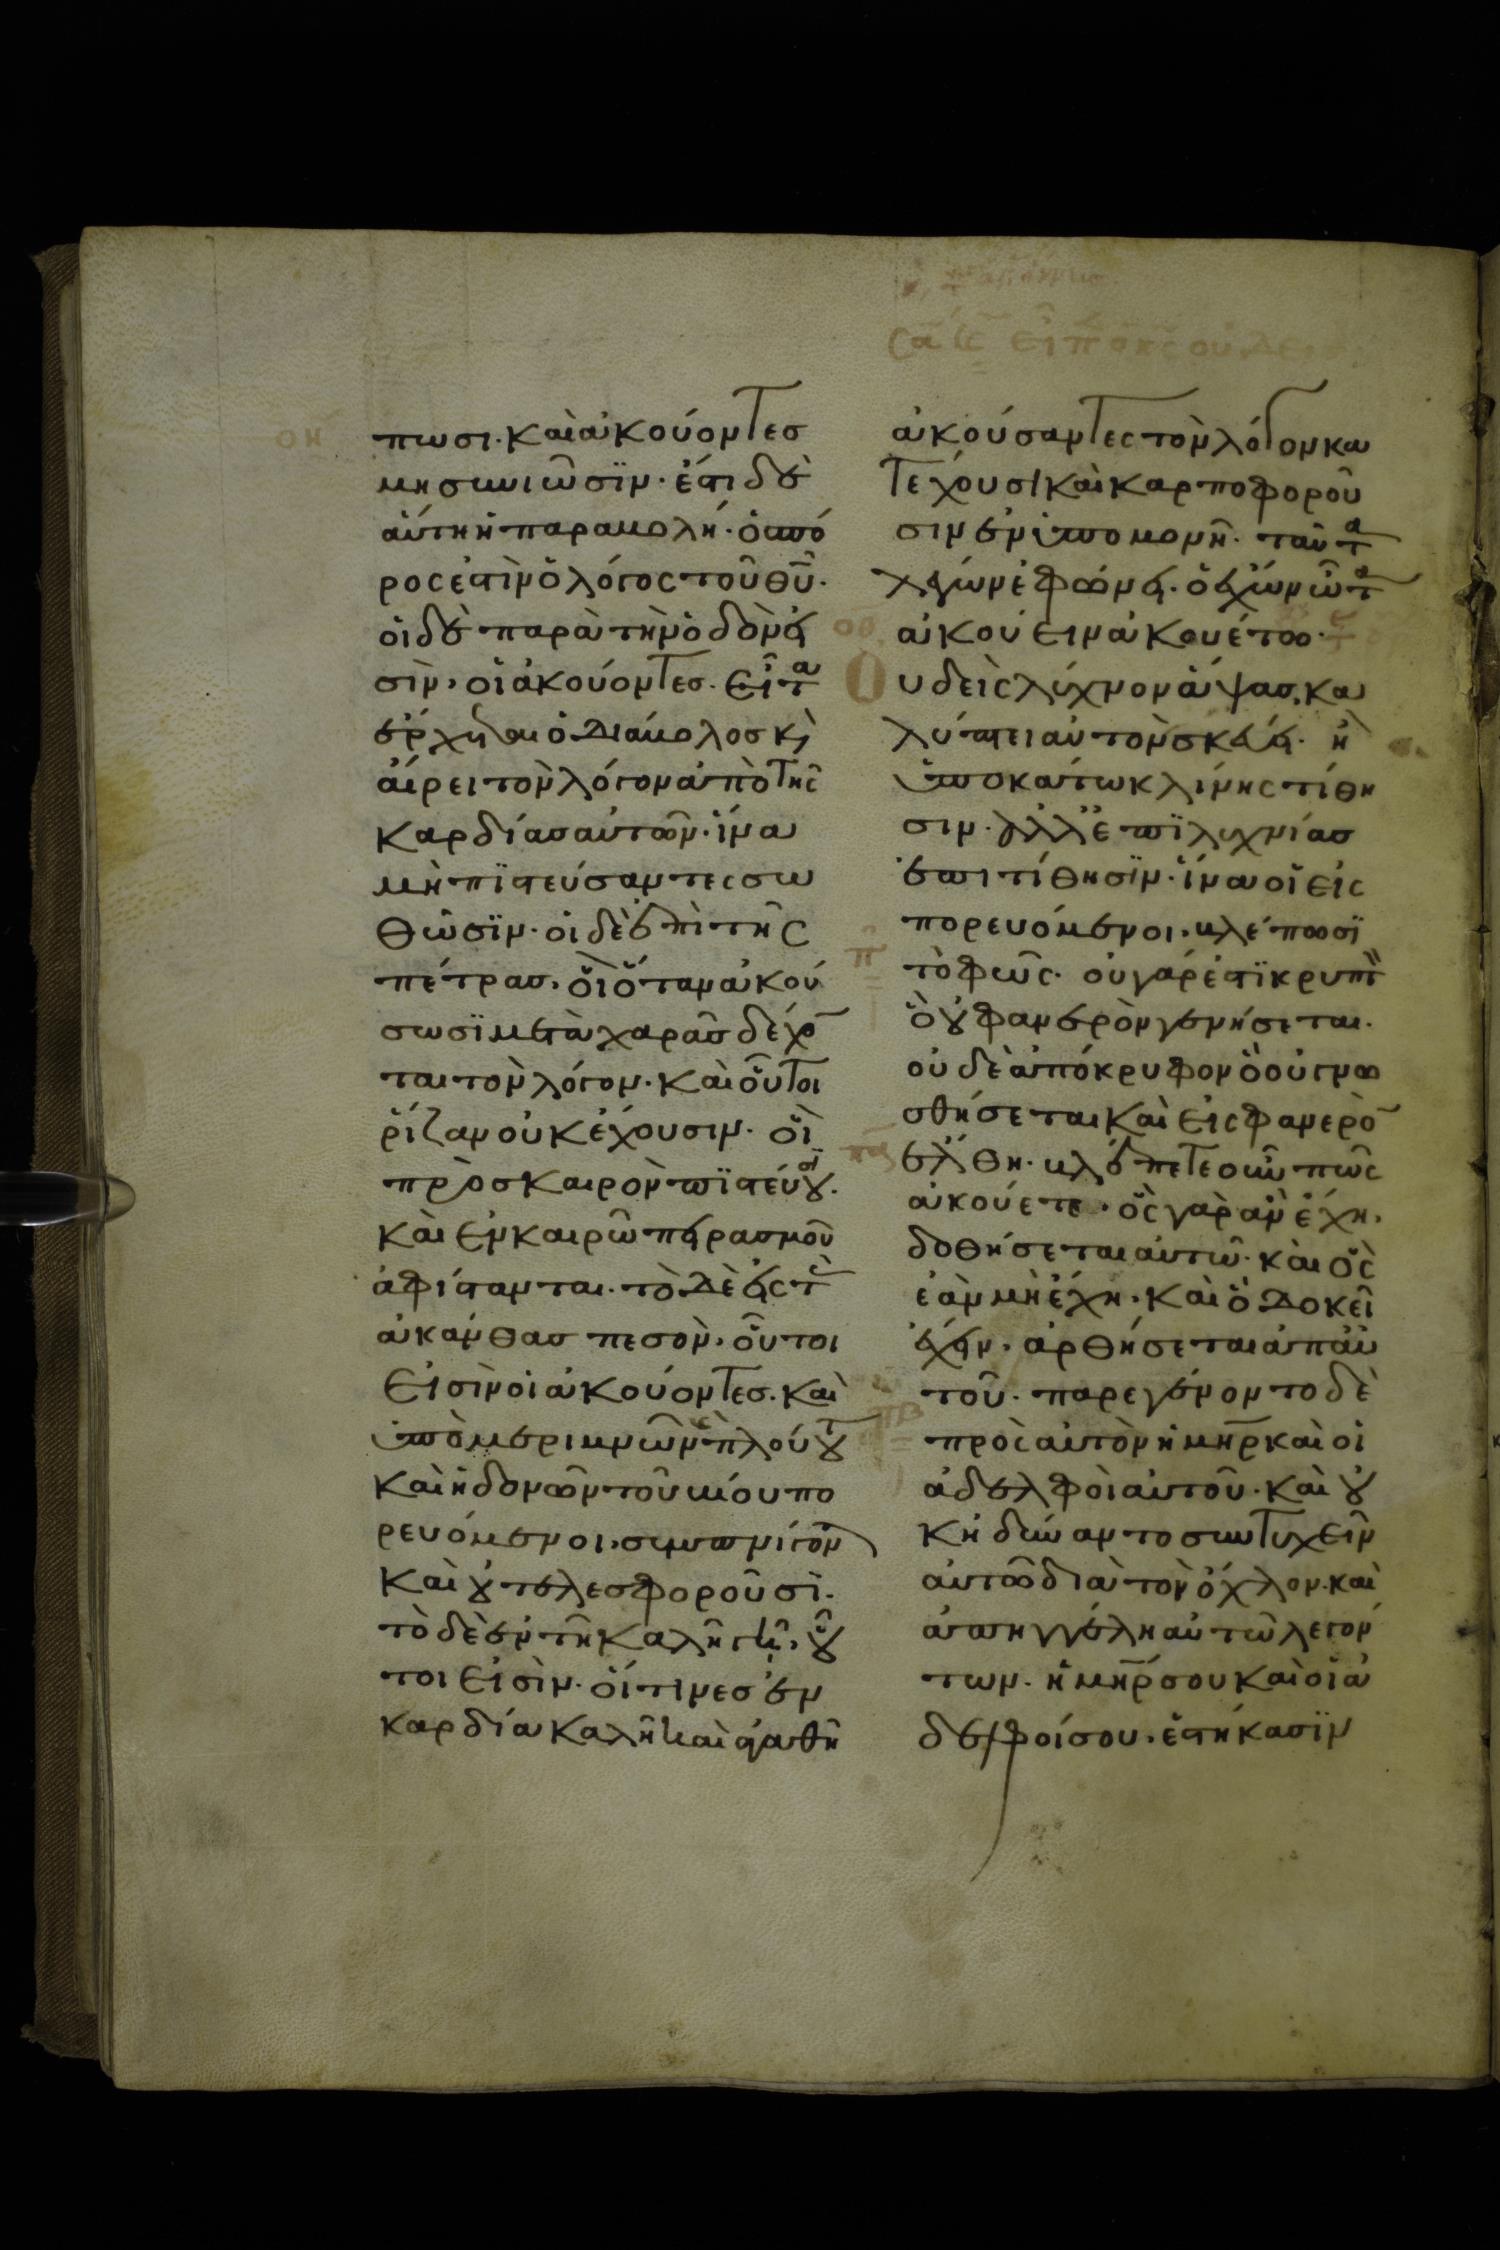 πωσι· καὶ ἀκούοντες
μη συνιῶσϊν· ἔστι δὲ
ἁύτη ἡ παραβολή· ὁ σπό
ρος ἐστὶν ὁ λόγος τοῦ θῦ·
οἱ δὲ παρὰ τὴν ὁδὸν εἰ
σὶν, οἱ ἀκούοντες· εἶτα
ἔρχεται ὁ διάβολος κ̀
ἀίρει τὸν λόγον ἀπὸ τῆς
καρδίας αὐτῶν· ἵνα
μὴ πϊστεύσαντες σω
θῶσϊν· οἱ δὲ ἐπὶ τῆς
πέτρας, οἳ ὅταν ἀκού
σωσϊ μετὰ χαρᾶς δέχο̄
ται τὸν λόγον· καὶ οὗτοι
ῥίζαν οὐκ ἔχουσιν· οἳ
πρὸς καιρὸν πϊστεύου·
καὶ ἐν καιρῶ πειρασμοῦ
ἀφίστανται· τὸ δὲ εἰς τ̀
ἀκάνθας πεσὸν, οὗτοι
εἰσὶν οἱ ἀκούοντες· καὶ
ὑπὸ μεριμνῶν κ̀ πλούτου
καὶ ἡδονῶν τοῦ βίου πο
ρευόμενοι, συμπνίγον
καὶ οὐ τελεσφοροῦσὶ·
τὸ δὲ ἐν τῆ καλῆ γῆ, οὗ
τοι εἰσὶν· οἵτινες ἐν
καρδία καλῆ καὶ ἀγαθῆ
ἀκούσαντες τὸν λόγον κα
τέχουσι καὶ καρποφοροῦ
σιν ἐν ὑπομονῆ· ταῦτα
λέγων ἐφώνει· ὁ ἔχων ὦτα
ἀκούειν ἀκουέτω·
Ουδεὶς λύχνον ἅψας, κα
λύπτει αὐτὸν σκεύει· ἢ
ὑποκάτω κλίνης τίθη
σιν· ἀλλ' ἐπϊ λυχνίας
ἐπιτίθησϊν· ἵνα οἱ εἰς
πορευόμενοι, βλέπωσϊ
τὸ φῶς· οὐ γάρ ἐστϊ κρυπτὸ
ὃ οὐ φανερὸν γενήσεται·
οὐδὲ ἀπόκρυφον ὃ οὐ γνω
σθήσεται καὶ εἰς φανερὸ̄
ἔλθη· βλέπετε οὖν πῶς
ἀκούετε· ὃς γὰρ ἂν ἔχη,
δοθήσεται αὐτῶ· καὶ ὃς
ἐὰν μὴ ἔχη, καὶ ὃ δοκεῖ
ἔχειν, ἀρθήσεται ἀπ' αὐ
τοῦ· παρεγένοντο δὲ
πρὸς αὐτὸν ἡ μη̄ρ καὶ οἱ
ἀδελφοὶ αὐτοῦ· καὶ οὐ
κ ἠδύναντο συντυχεῖν
αὐτῶ διὰ τὸν ὄχλον· καὶ
ἀπηγγέλη αὐτῶ λεγόν
των· ἡ μη̄ρ σου καὶ οἱ ἀ
δελφοί σου, ἑστήκασϊν